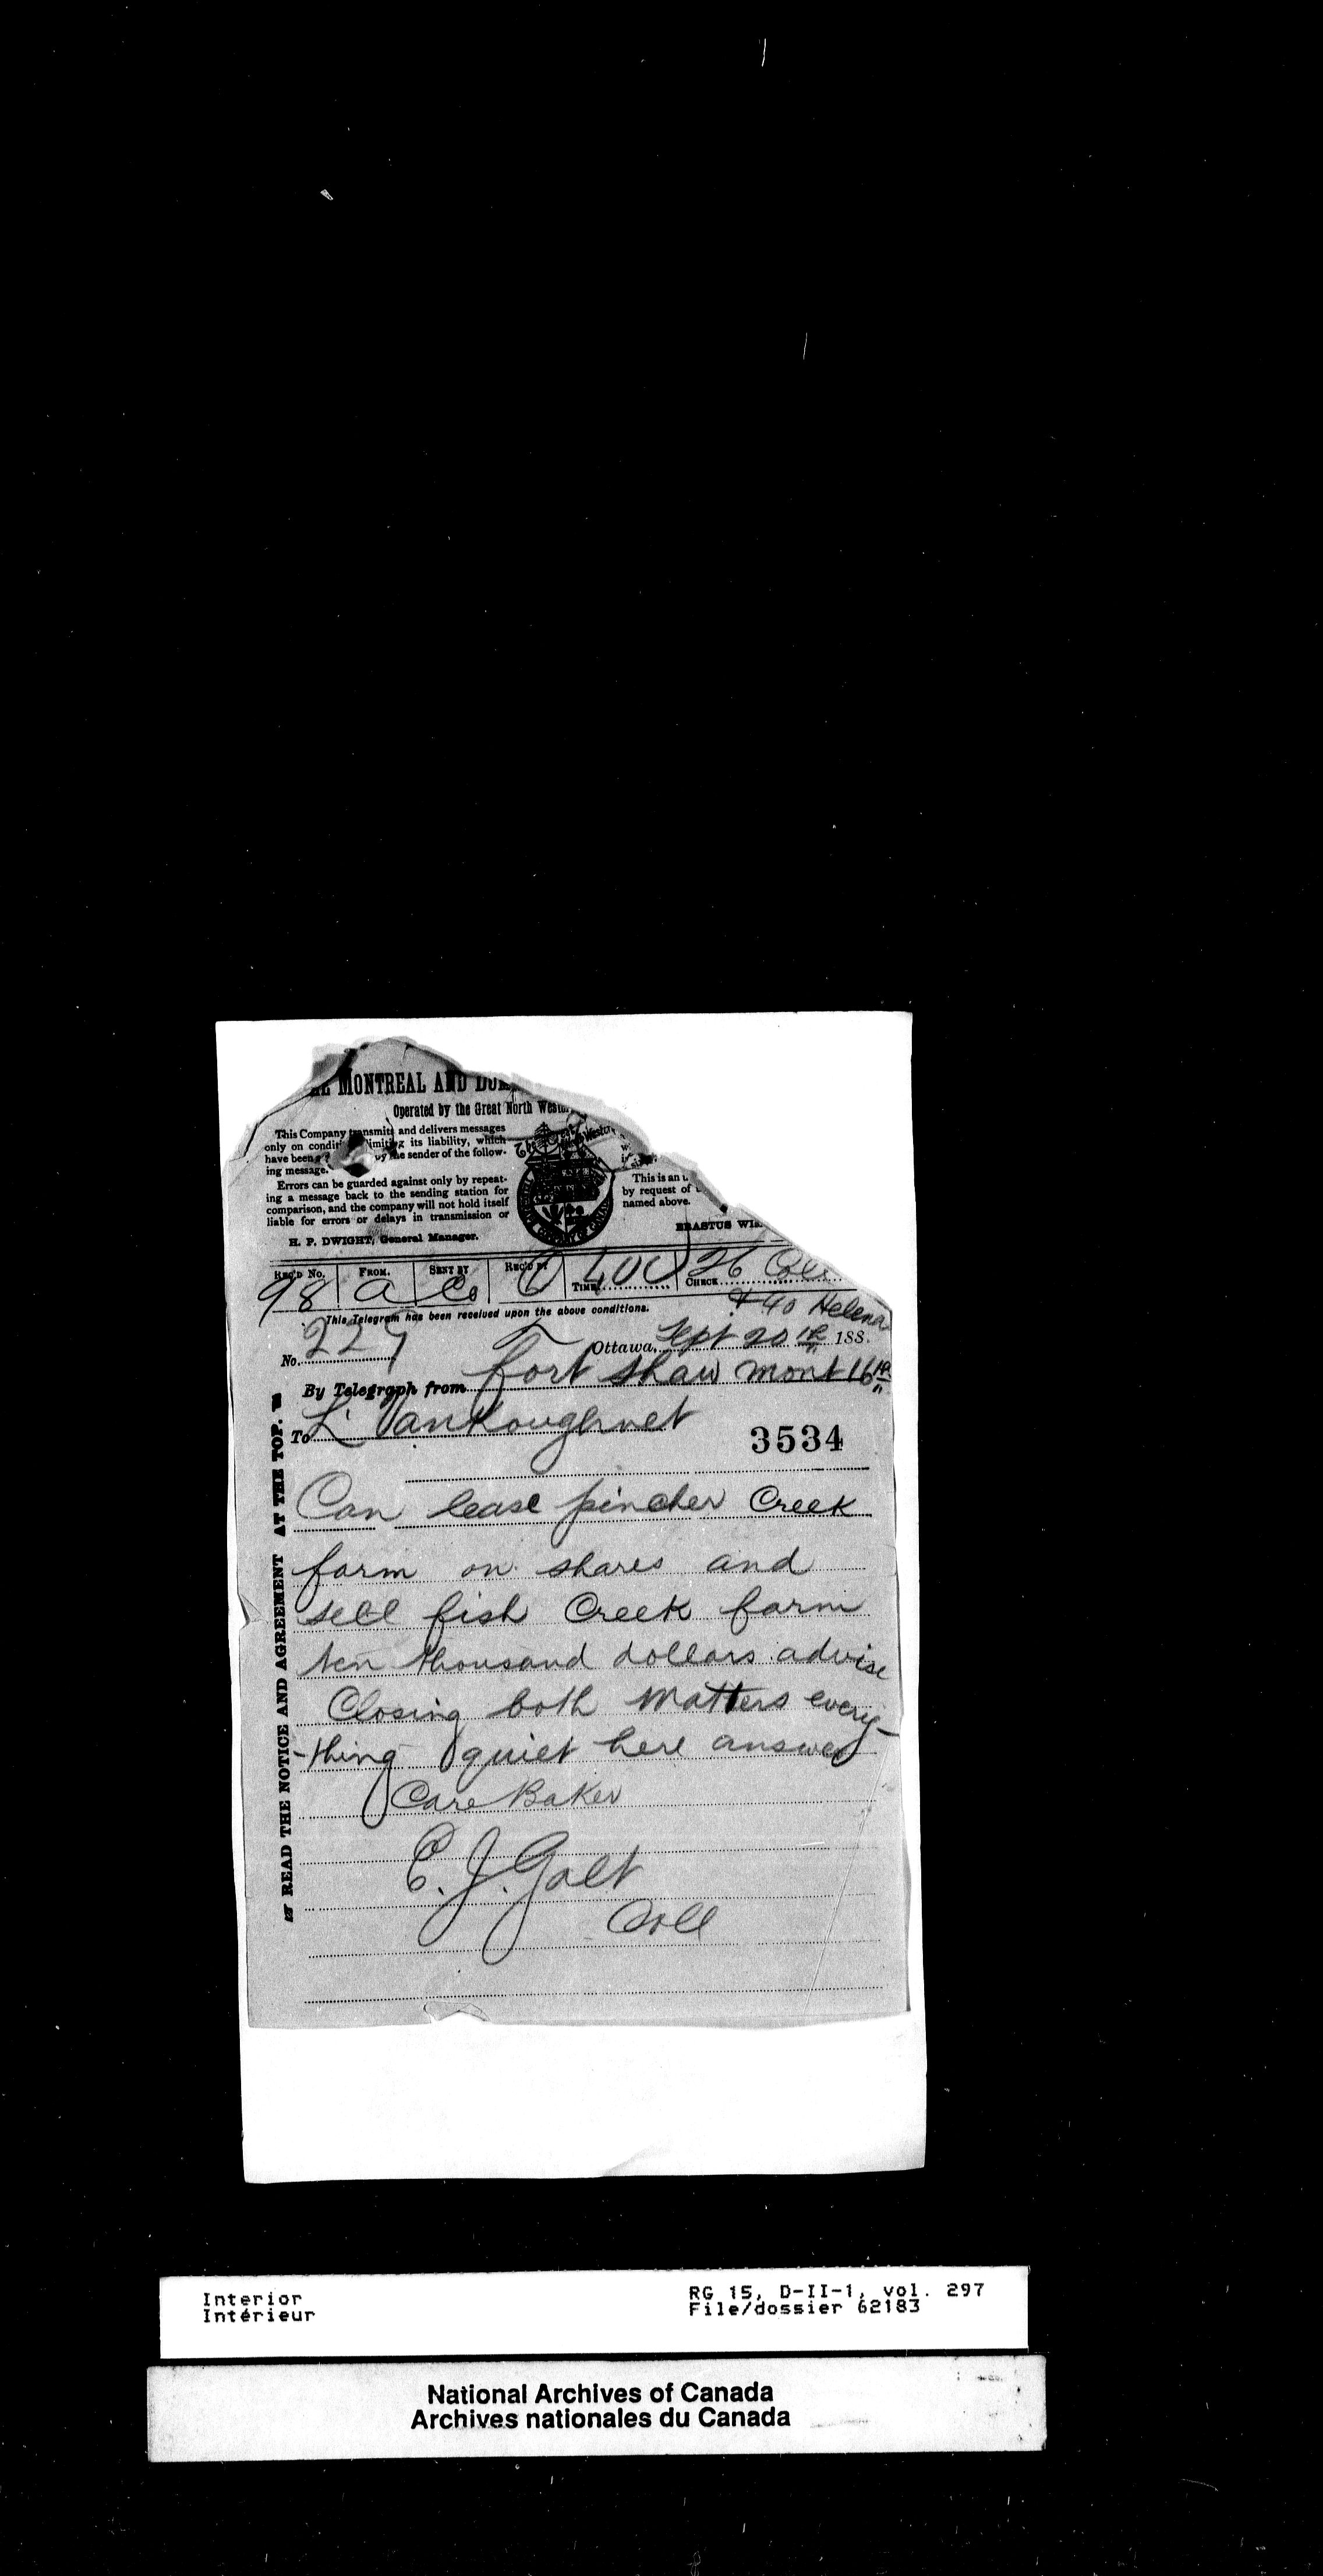 MONTREAL AND
Operated by the Great North
This Company transmits and delivers messages
only on its liability, which
have been by the sender of the follow-
ing message.
Errors can be guarded against only by repeat-
ing a message back to the sending station for
comparison, and the company will not hold itself
liable for errors or delays in transmission or
H. P. DWIGHT, General Manager.
This is an
by request of
named above.
ERASTUS
REC'D No. FROM. SENT BY REC'D BY TIME CHECK
98 a Co 400 26
& 40 Helena
This Telegram has been received upon the above conditions.
No. 229 Ottawa, Sept 20 th 188
By Telegraph from fort shaw mont 16th
To L Vankoughnet
3534
Can lease pincher Creek
farm on shares and
sell fish Creek farm
ten thousand dollars advise
Closing both Matters every-
-thing quiet here answer
Care Baker
E. J. Galt
Coll
READ THE NOTICE AND AGREEMENT AT THE TOP.
Interior
Intérieur
RG 15, D-II-1, vol. 297
File/dossier 62183
National Archives of Canada
Archives nationales du Canada